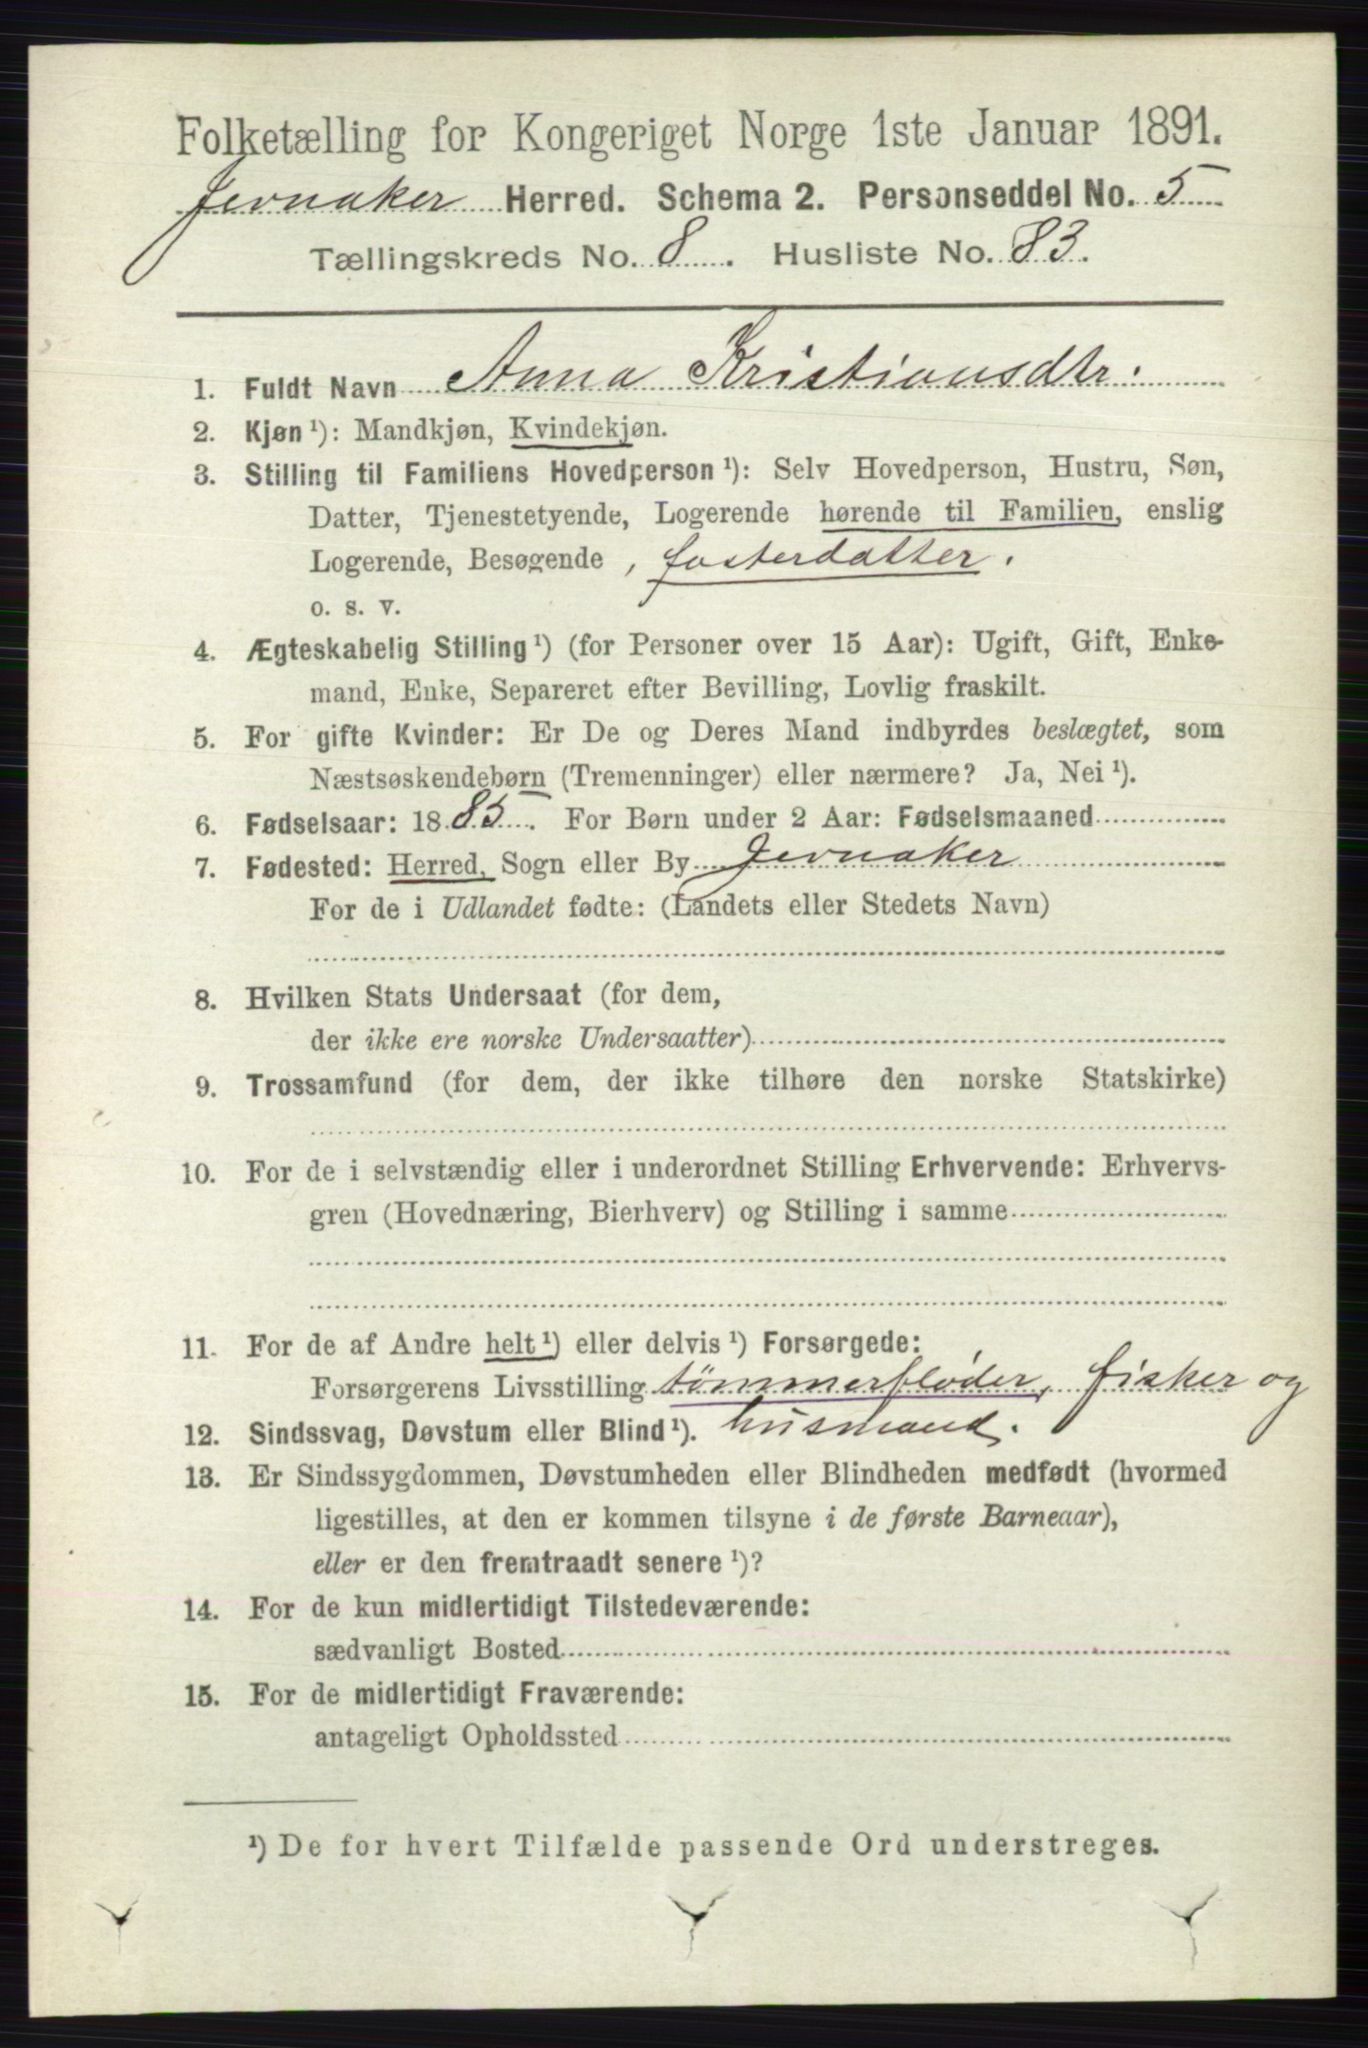 Folketælling for Kongeriget Norge 1ste Januar 1891.
Jevnaker Herred. Schema 2. Personseddel No. 5
Tællingskreds No. 8. Husliste No. 83.
1. Fuldt Navn Anna Kristiansdtr.
2. Kjøn ¹): Mandkjøn, Kvindekjøn.
3. Stilling til Familiens Hovedperson ¹): Selv Hovedperson, Hustru, Søn,
Datter, Tjenestetyende, Logerende hørende til Familien, enslig
Logerende, Besøgende , fosterdatter.
o. s. v.
4. Ægteskabelig Stilling ¹) (for Personer over 15 Aar): Ugift, Gift, Enke-
mand, Enke, Separeret efter Bevilling, Lovlig fraskilt.
5. For gifte Kvinder: Er De og Deres Mand indbyrdes beslægtet, som
Næstsøskendebørn (Tremenninger) eller nærmere? Ja, Nei ¹).
6. Fødselsaar: 1885. For Børn under 2 Aar: Fødselsmaaned
7. Fødested: Herred, Sogn eller By Jevnaker
For de i Udlandet fødte: (Landets eller Stedets Navn)
8. Hvilken Stats Undersaat (for dem,
der ikke ere norske Undersaatter)
9. Trossamfund (for dem, der ikke tilhøre den norske Statskirke)
10. For de i selvstændig eller i underordnet Stilling Erhvervende: Erhvervs-
gren (Hovednæring, Bierhverv) og Stilling i samme
11. For de af Andre helt ¹) eller delvis ¹) Forsørgede:
Forsørgerens Livsstilling tømmerfløder, fisker og
12. Sindssvag, Døvstum eller Blind ¹). husmand.
13. Er Sindssygdommen, Døvstumheden eller Blindheden medfødt (hvormed
ligestilles, at den er kommen tilsyne i de første Barneaar),
eller er den fremtraadt senere ¹)?
14. For de kun midlertidigt Tilstedeværende:
sædvanligt Bosted
15. For de midlertidigt Fraværende:
antageligt Opholdssted
¹) De for hvert Tilfælde passende Ord understreges.